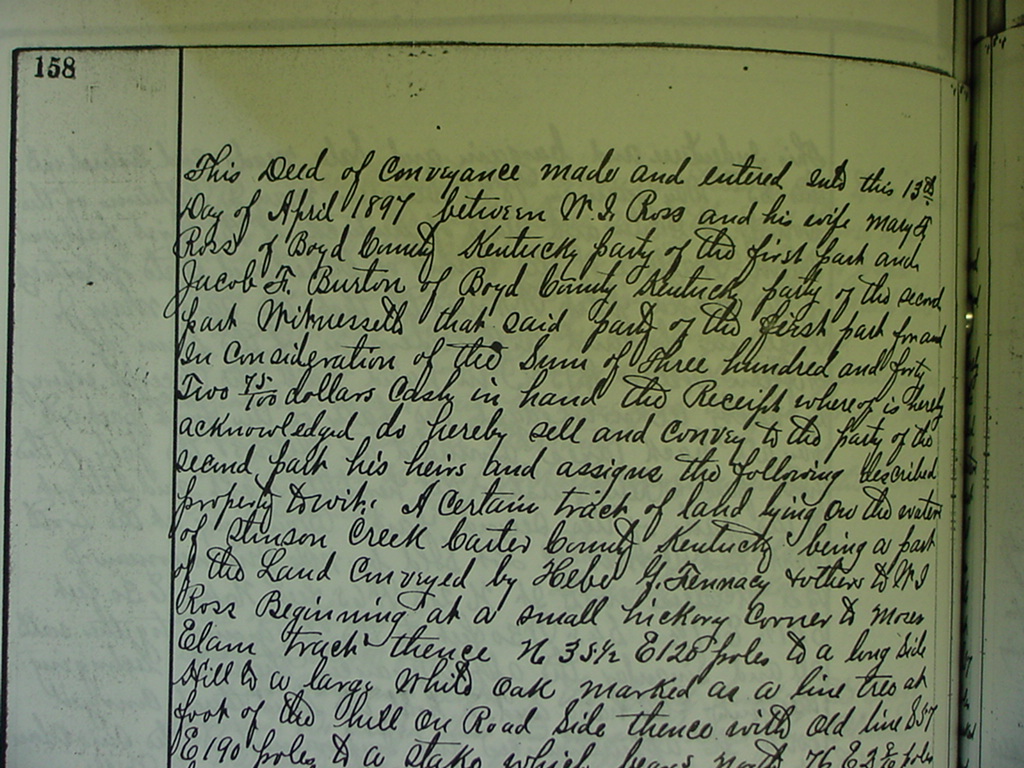 158
This Deed of Conveyance made and entered into this 13th
Day of April 1897 between W. I. Ross and his wife Mary F
Ross of Boyd County Kentucky party of the first part and
Jacob F. Burton of Boyd County Kentucky party of the second
part Witnesseth that said party of the first part for and
In Consideration of the Sum of Three hundred and forty
Two 75/100 dollars Cash in hand the Receipt whereof is hereby
acknowledged do hereby sell and convey to the party of the
second part his heirs and assigns the following described
property towit: A certain tract of land lying on the waters
of Stinson Creek Carter County Kentucky being a part
of the Land Conveyed by Heber & others to W I
Ross Beginning at a small hickory Corner to Moses
Elam tract thence N 35½ E 120 poles to a long side
Hill to a large White Oak marked as a line tree at
foot of the hill on Road Side thence with old line S 57
E 190 poles to a stake which bears north 76 E poles